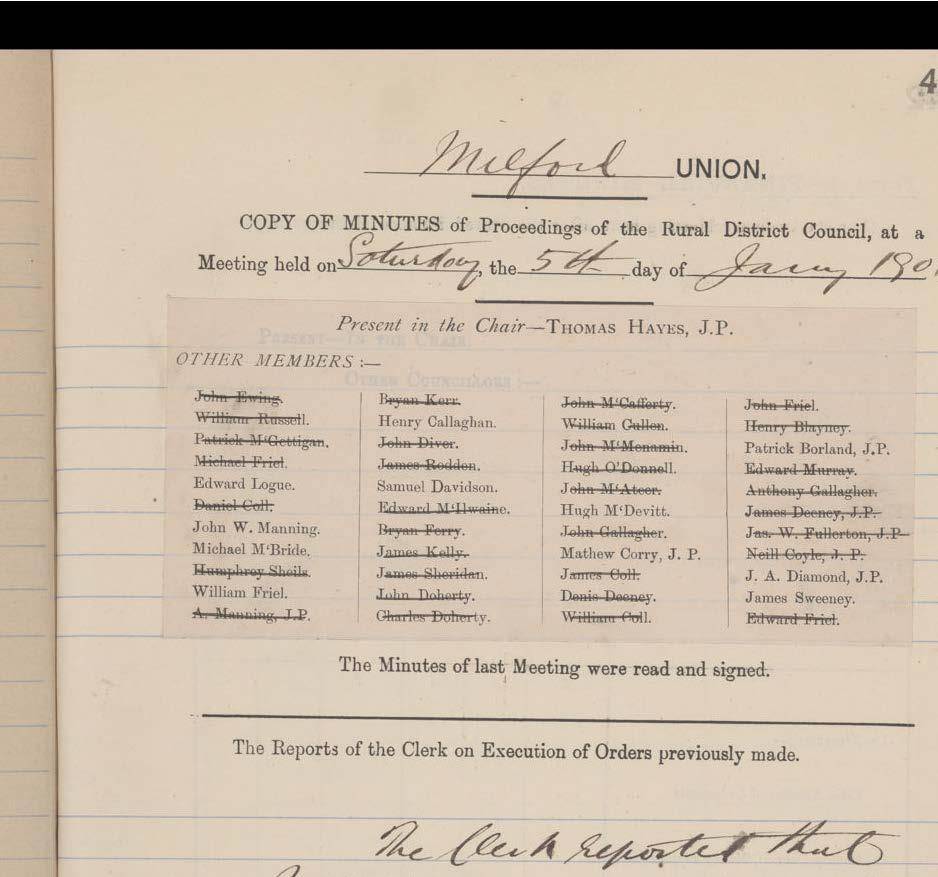 4
Milford UNION.
COPY OF MINUTES of Proceedings of the Rural District Council, at a
Meeting held on Saturday, the 5th day of Jany 190
Present in the Chair—THOMAS HAYES, J.P.
PRESENT—IN THE CHAIR
OTHER MEMBERS :—
OTHER COUNCILLORS :—
John Ewing.
William Russell.
Patrick M‘Gettigan.
Michael Friel.
Edward Logue.
Daniel Coll.
John W. Manning.
Michael M‘Bride.
Humphrey Sheils.
William Friel.
A. Manning, J.P.
Bryan Kerr.
Henry Callaghan.
John Diver.
James Rodden.
Samuel Davidson.
Edward M‘Ilwaine.
Bryan Ferry.
James Kelly.
James Sheridan.
John Doherty.
Charles Doherty.
John M‘Cafferty.
William Cullen.
John M‘Menamin.
Hugh O’Donnell.
John M‘Ateer.
Hugh M‘Devitt.
John Gallagher.
Mathew Corry, J. P.
James Coll.
Denis Deeney.
William Coll.
John Friel.
Henry Blayney.
Patrick Borland, J.P.
Edward Murray.
Anthony Gallagher.
James Deeney, J.P.
Jas. W. Fullerton, J.P
Neill Coyle, J. P.
J. A. Diamond, J.P.
James Sweeney.
Edward Friel.
The Minutes of last Meeting were read and signed.
The Reports of the Clerk on Execution of Orders previously made.
The Clerk reported that